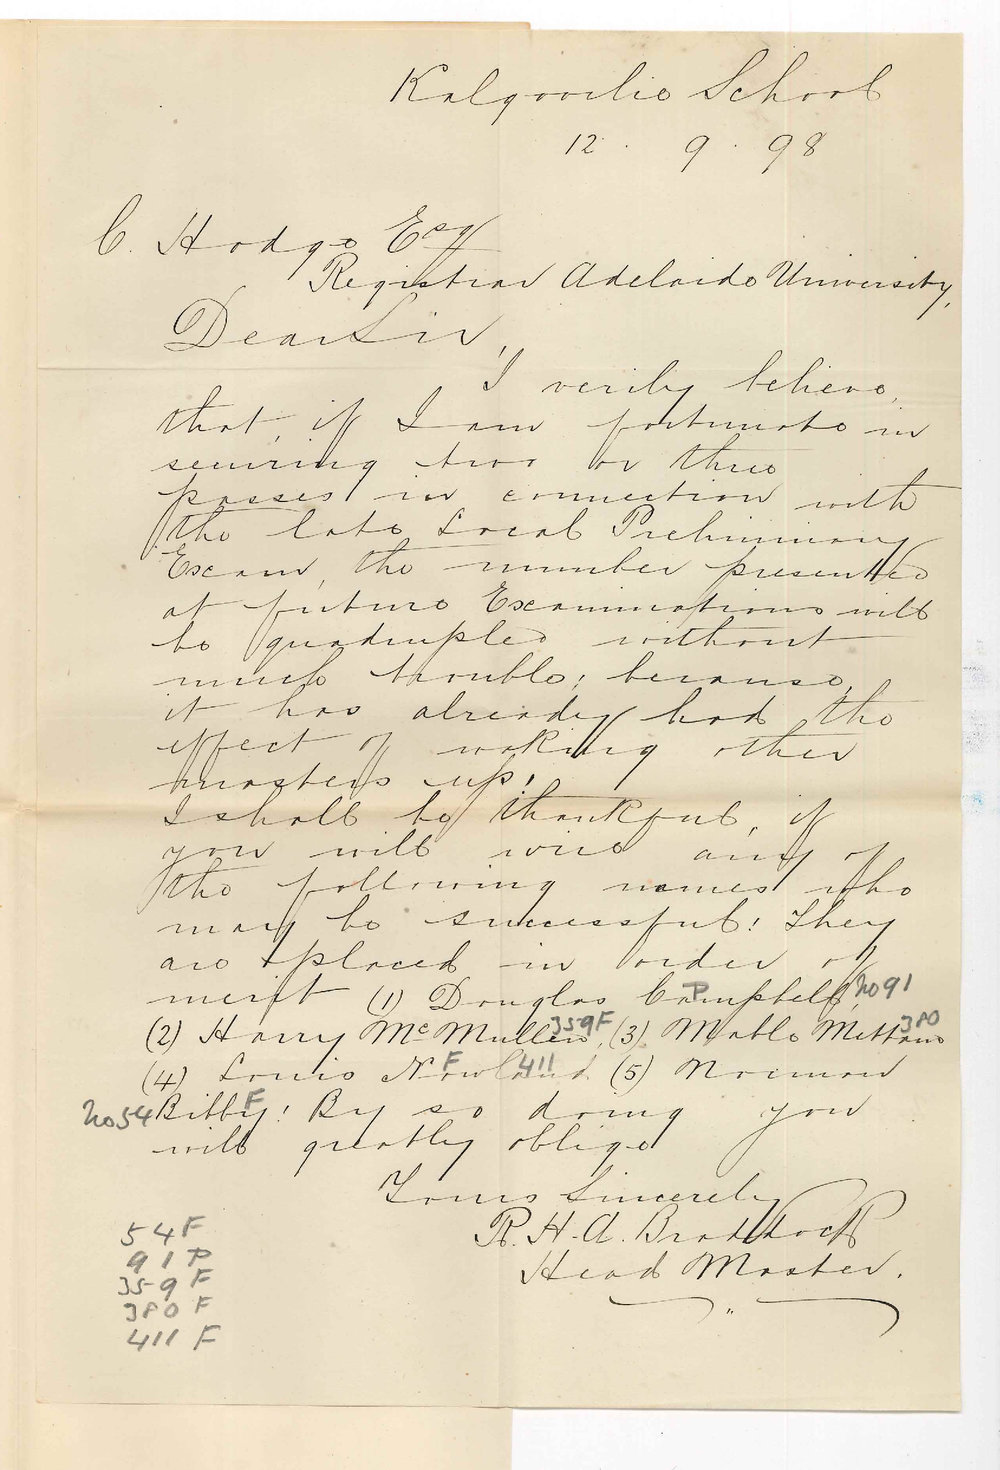 Kalgoorlie School
12 . 9 . 98
C. Hodge Esq
Registrar Adelaide University,
Dear Sir,
I verily believe,
that, if I am fortunate in
securing two or three
passes in connection with
the late Local Preliminary
Exam, the number presented
at future Examinations will
be quadrupled without
much trouble; because,
it has already had the
effect of waking other
masters up.
I shall be thankful, if
you will wire any of
the following names who
may be successful: They
are placed in order of
merit (1) Douglas Campbell, P No 91
(2) Harry McMullen, 359F (3) Mable 380
(4) Louis Nowland F 411 (5) Norman
No 54 Bibby F! By so doing you
will greatly oblige
Yours Sincerely
R. H. A. Braddock
Head Master.
54 F
91 P
359 F
380 F
411 F